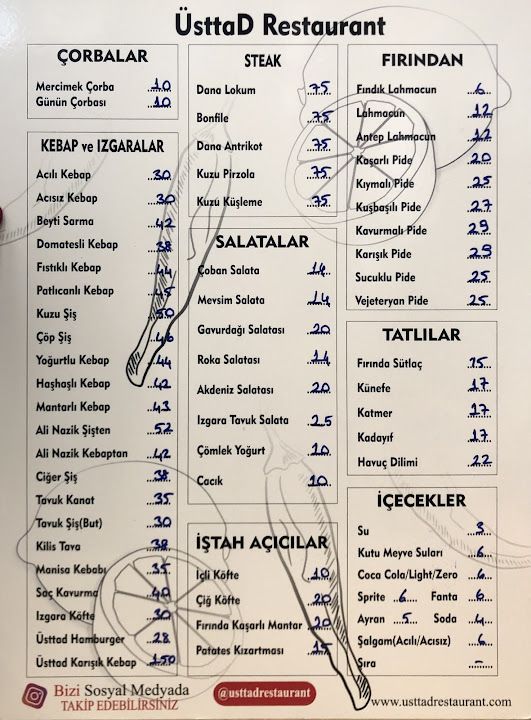 ÜsttaD Restaurant
ÇORBALAR
Mercimek Çorba 10
Günün Çorbası 10
KEBAP ve IZGARALAR
Acılı Kebap 30
Acısız Kebap 30
Beyti Sarma 42
Domatesli Kebap 38
Fıstıklı Kebap 44
Patlıcanlı Kebap 45
Kuzu Şiş 50
Çöp Şiş 46
Yoğurtlu Kebap 44
Haşhaşlı Kebap 42
Mantarlı Kebap 43
Ali Nazik Şişten 52
Ali Nazik Kebaptan 42
Ciğer Şiş 38
Tavuk Kanat 35
Tavuk Şiş(But) 30
Kilis Tava 38
Manisa Kebabı 35
Saç Kavurma 40
Izgara Köfte 30
Üsttad Hamburger 28
Üsttad Karışık Kebap 150
STEAK
Dana Lokum 75
Bonfile 75
Dana Antrikot 75
Kuzu Pirzola 75
Kuzu Küşleme 75
SALATALAR
Çoban Salata 14
Mevsim Salata 14
Gavurdağı Salatası 20
Roka Salatası 14
Akdeniz Salatası 20
Izgara Tavuk Salata 25
Çömlek Yoğurt 10
Cacık 10
İŞTAH AÇICILAR
İçli Köfte 10
Çiğ Köfte 20
Fırında Kaşarlı Mantar 20
Patates Kızartması 15
FIRINDAN
Fındık Lahmacun 6
Lahmacun 12
Antep Lahmacun 12
Kaşarlı Pide 20
Kıymalı Pide 25
Kuşbaşılı Pide 27
Kavurmalı Pide 29
Karışık Pide 29
Sucuklu Pide 25
Vejeteryan Pide 25
TATLILAR
Fırında Sütlaç 15
Künefe 17
Katmer 17
Kadayıf 17
Havuç Dilimi 22
İÇECEKLER
Su 3
Kutu Meyve Suları 6
Coca Cola/Light/Zero 6
Sprite 6 Fanta 6
Ayran 5 Soda 4
Şalgam(Acılı/Acısız) 6
Şıra -
Bizi Sosyal Medyada
TAKİP EDEBİLİRSİNİZ
@usttadrestaurant
www.usttadrestaurant.com